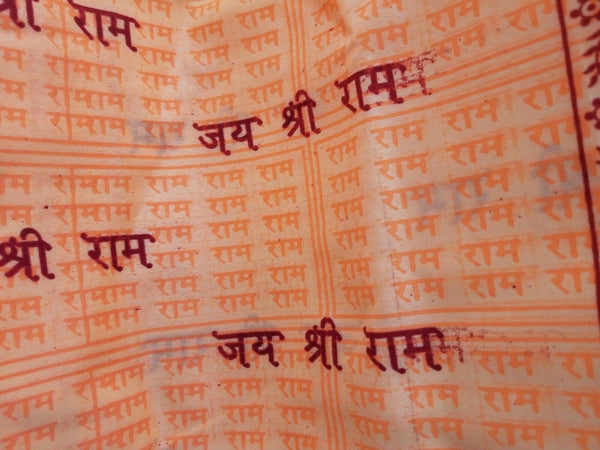 श्री राम
राम राम राम राम राम राम राम राम
राम राम राम राम राम राम राम राम
राम राम राम राम राम राम राम
जय श्री राम
राम राम राम राम राम राम राम राम
राम राम राम राम राम राम राम राम
राम राम राम राम राम राम राम राम
श्री राम
राम राम राम राम राम राम राम
राम राम राम राम राम राम राम राम
राम राम राम राम राम राम राम राम
जय श्री राम
राम राम राम राम राम राम राम राम
राम राम राम राम राम राम राम राम
राम राम राम राम राम राम राम राम